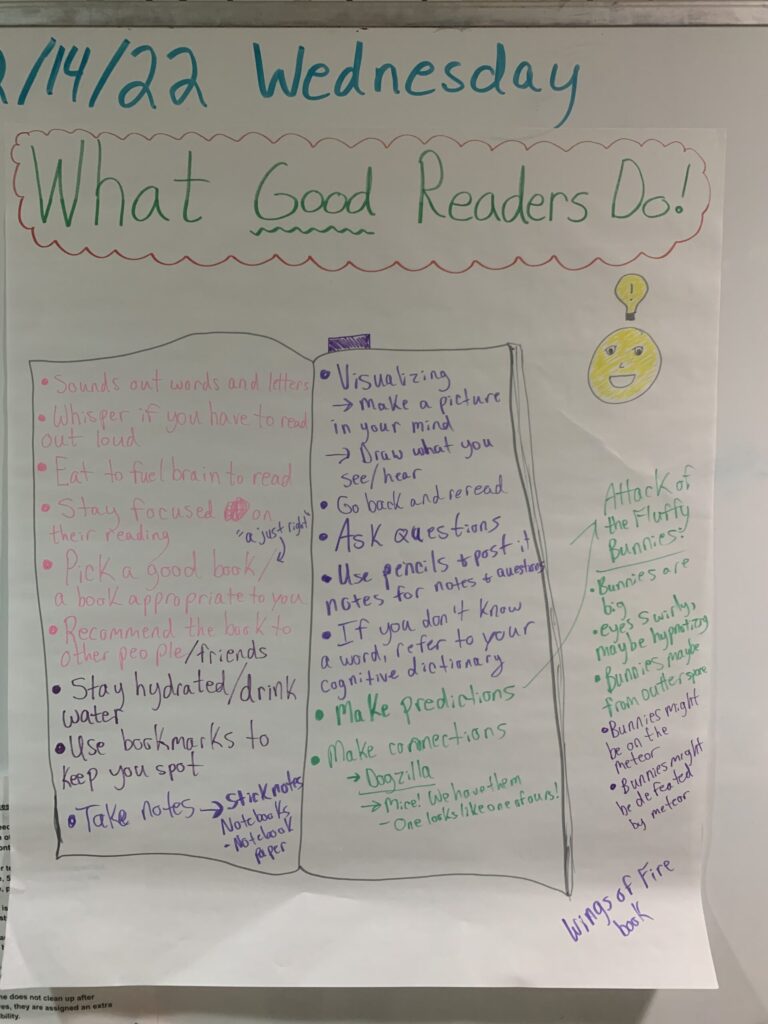 2/14/22 Wednesday
What Good Readers Do!
• Sounds out words and letters
• Whisper if you have to read
out loud
• Eat to fuel brain to read
• Stay focused on
their reading
"a just right"
• Pick a good book/
a book appropriate to you
• Recommend the book to
other people/friends
• Stay hydrated/drink
water
• Use bookmarks to
keep you spot
• Take notes → Stick notes
Notebooks
- Notebook
paper
• Visualizing
→ Make a picture
in your mind
→ Draw what you
see/hear
• Go back and reread
• Ask questions
• Use pencils + post it
notes for notes + questions
• If you don't know
a word, refer to your
cognitive dictionary
• Make predictions
• Make connections
→ Dogzilla
→ Mice! We have them
- One looks like one of ours!
Attack of
the Fluffy
Bunnies:
• Bunnies are
big
• eye's swirly,
maybe hypnotizing
• Bunnies maybe
from outter space
• Bunnies might
be on the
meteor
• Bunnies might
be defeated
by meteor
Wings of Fire
book
ne does not clean up after
es, they are assigned an extra
bility.